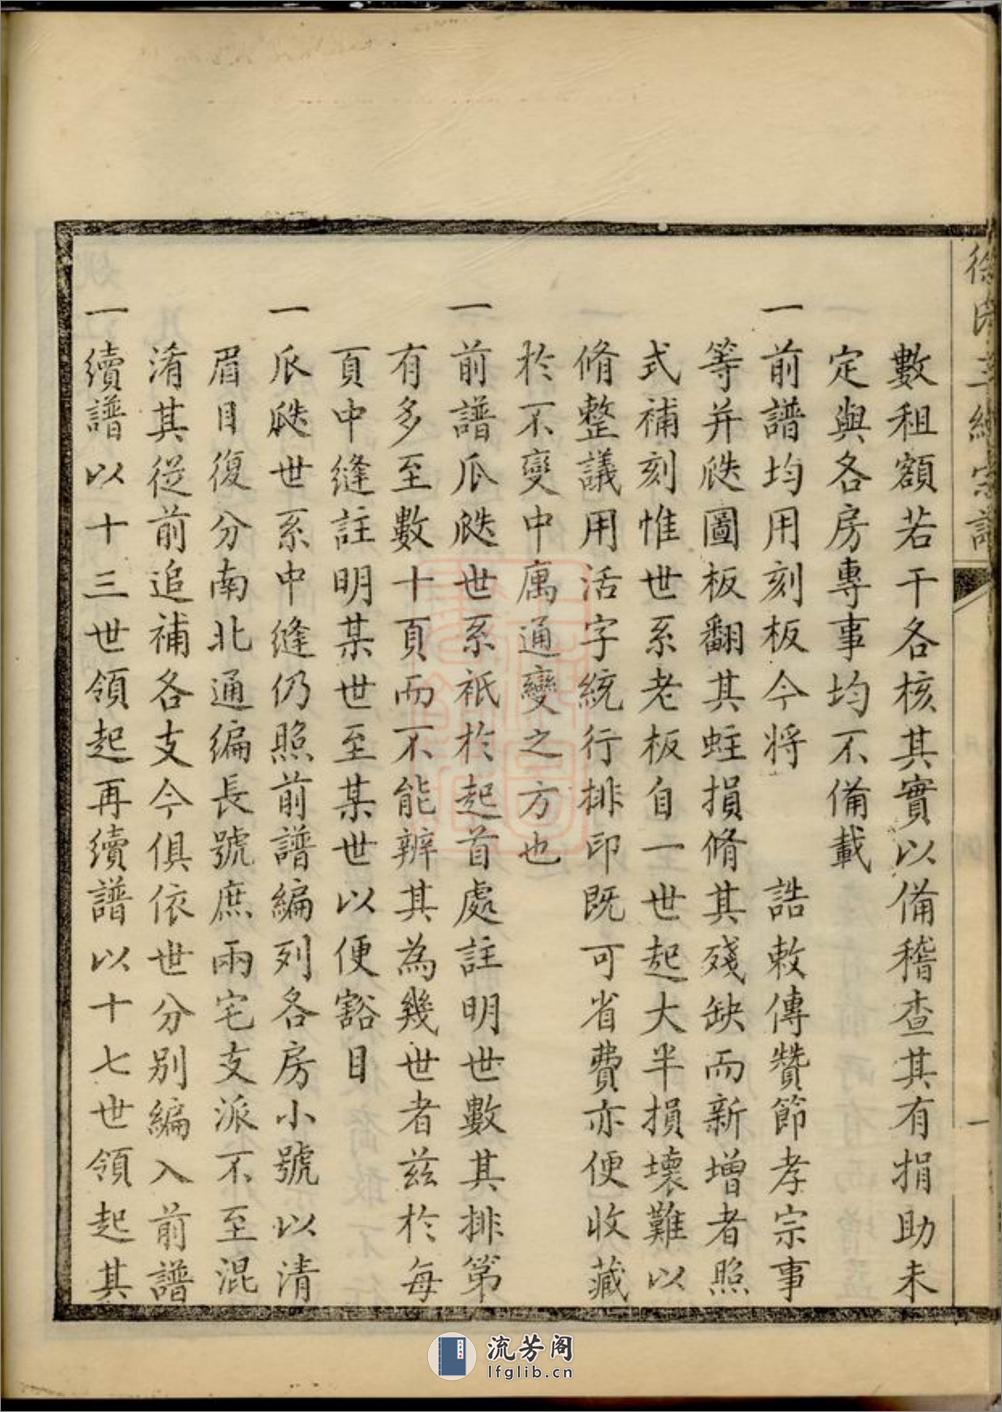 數租額若干各核其實以備稽查其有捐助未
定與各房專事均不備載
一前譜均用刻板今將 誥敕傳贊節孝宗事
等并瓞圖板翻其蛀損脩其殘缺而新增者照
式補刻惟世系老板自一世起大半損壞難以
脩整議用活字統行排印既可省費亦便收藏
於不變中寓通變之方也
一前譜瓜瓞世系祇於起首處註明世數其排第
有多至數十頁而不能辨其為幾世者茲於每
頁中縫註明某世至某世以便豁目
一瓜瓞世系中縫仍照前譜編列各房小號以清
眉目復分南北通編長號庶兩宅支派不至混
淆其從前追補各支今俱依世分別編入前譜
一續譜以十三世領起再續譜以十七世領起其
流芳阁
lfglib.cn